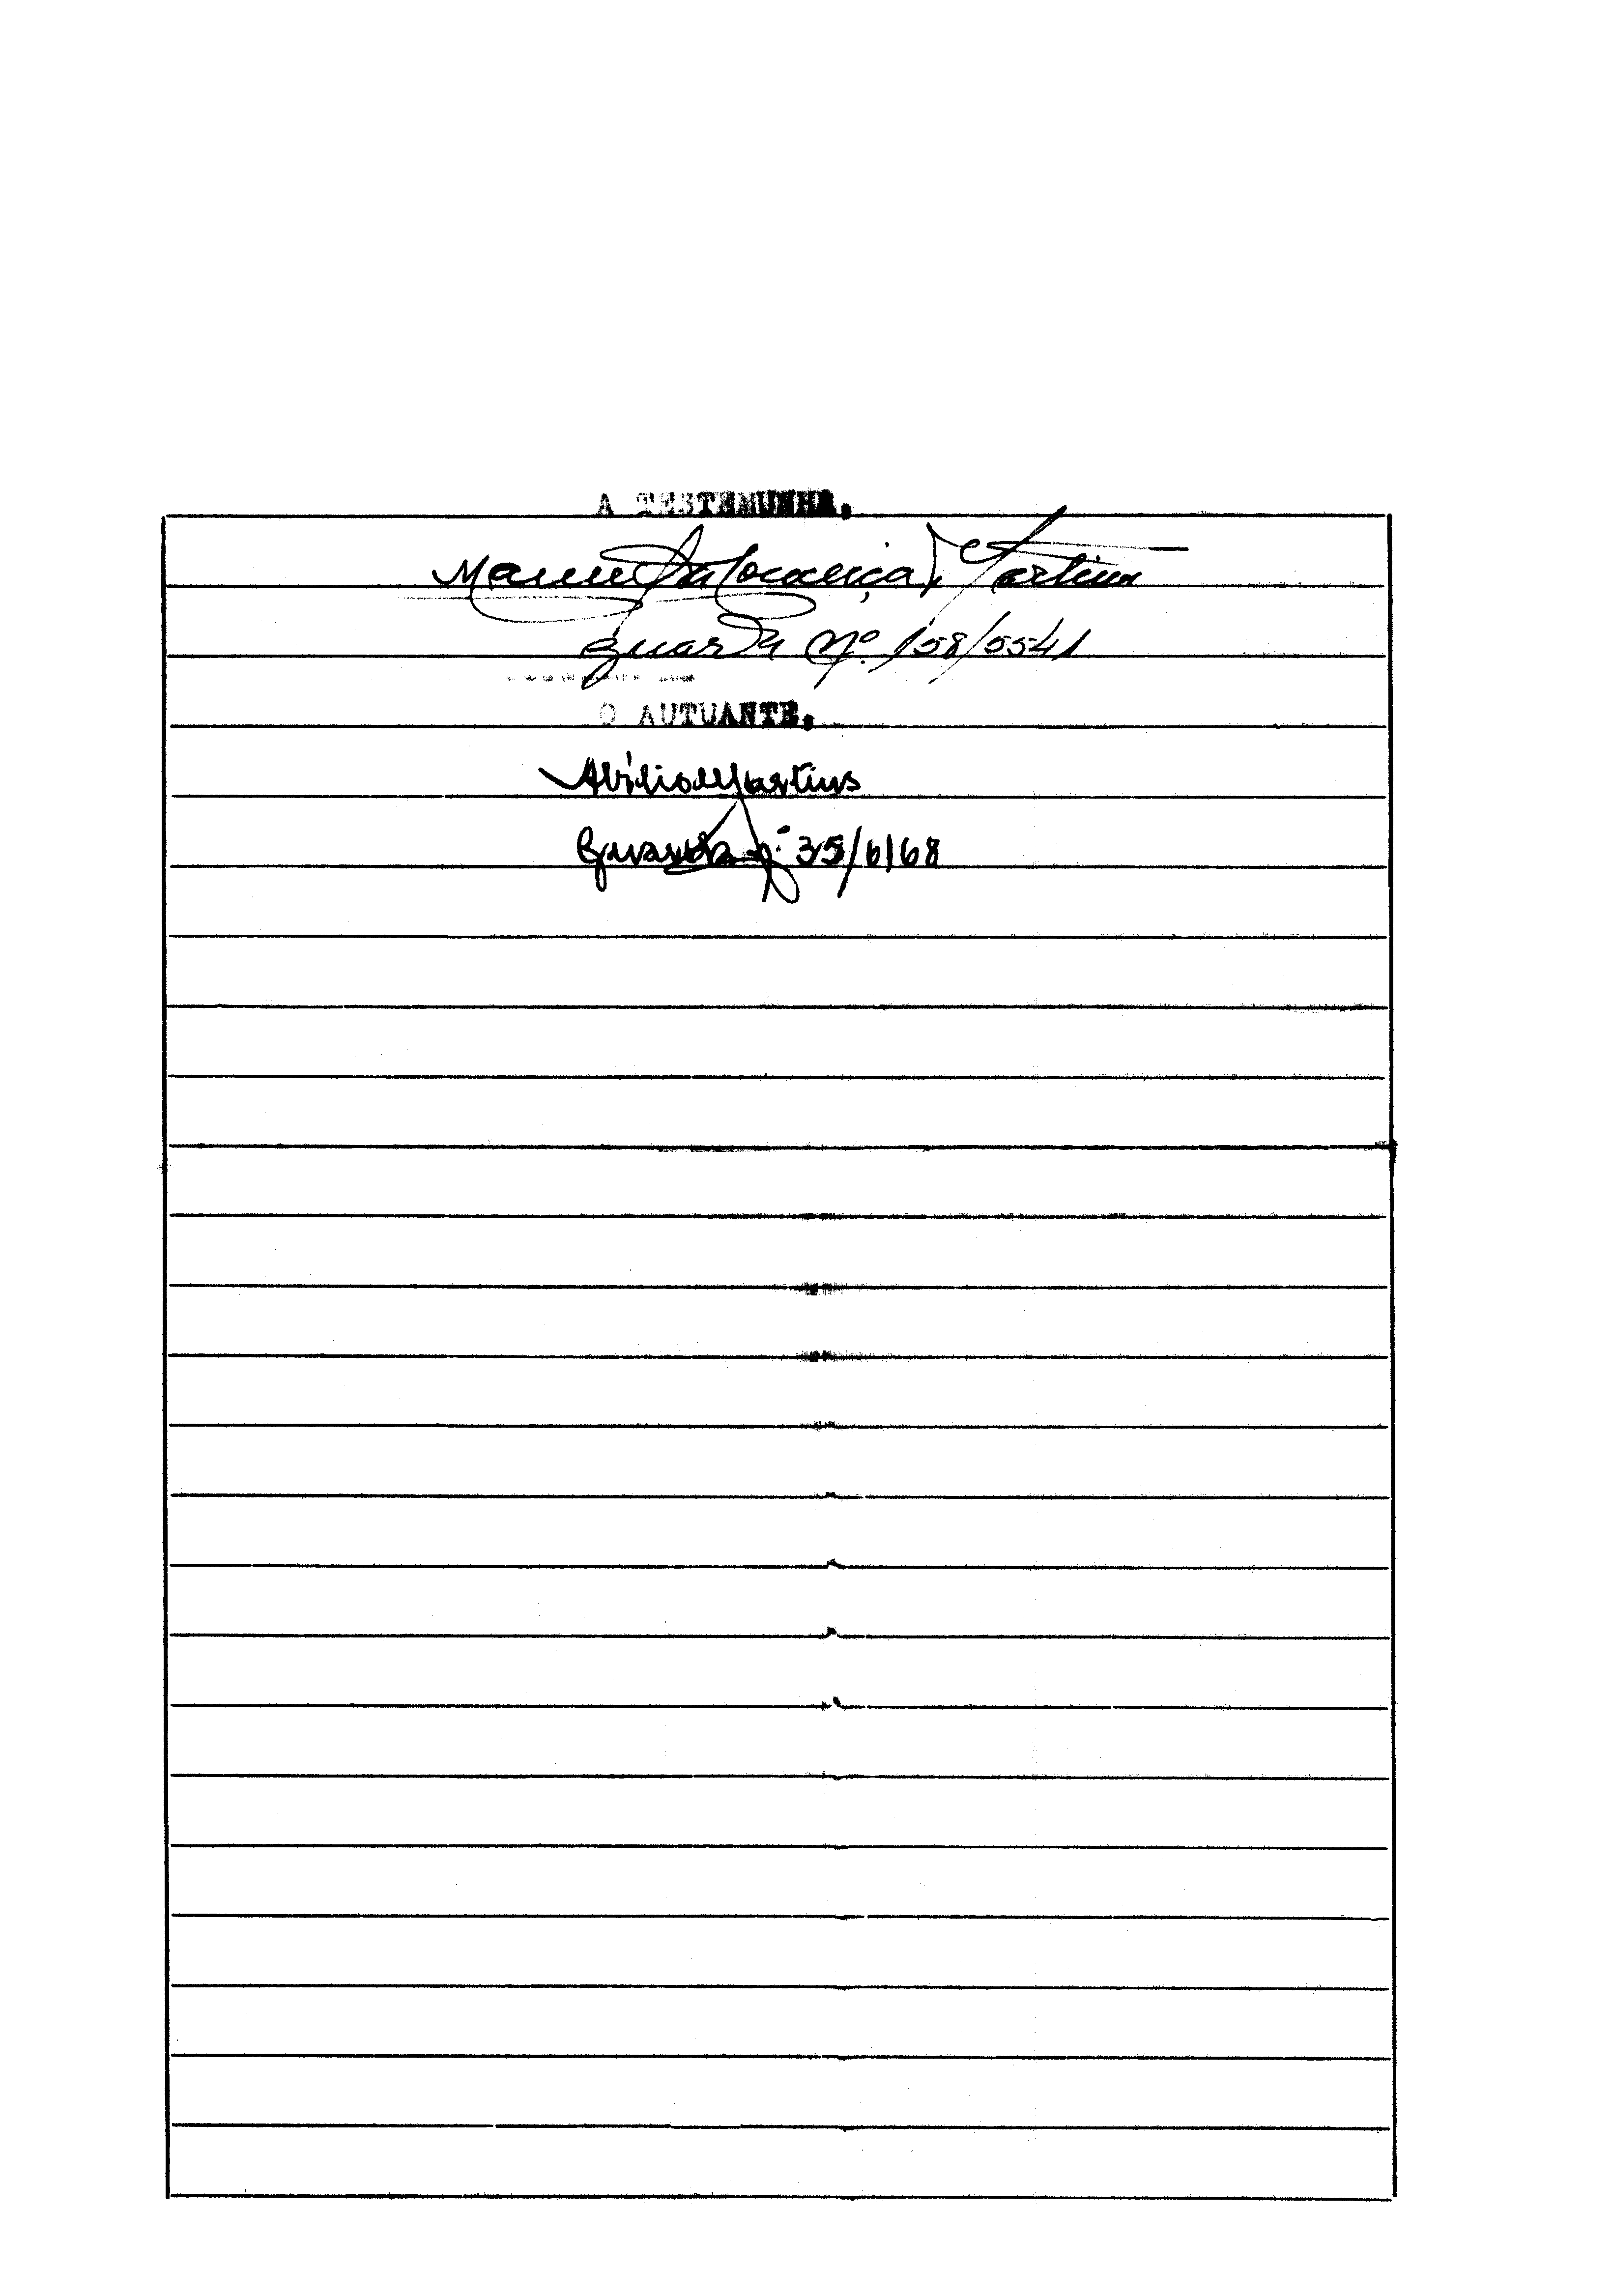 A TESTEMUNHA,
Manuel da Martins
guarda Nº. 158/5541
O AUTUANTE,
Abílio Martins
Guarda nº 35/6168